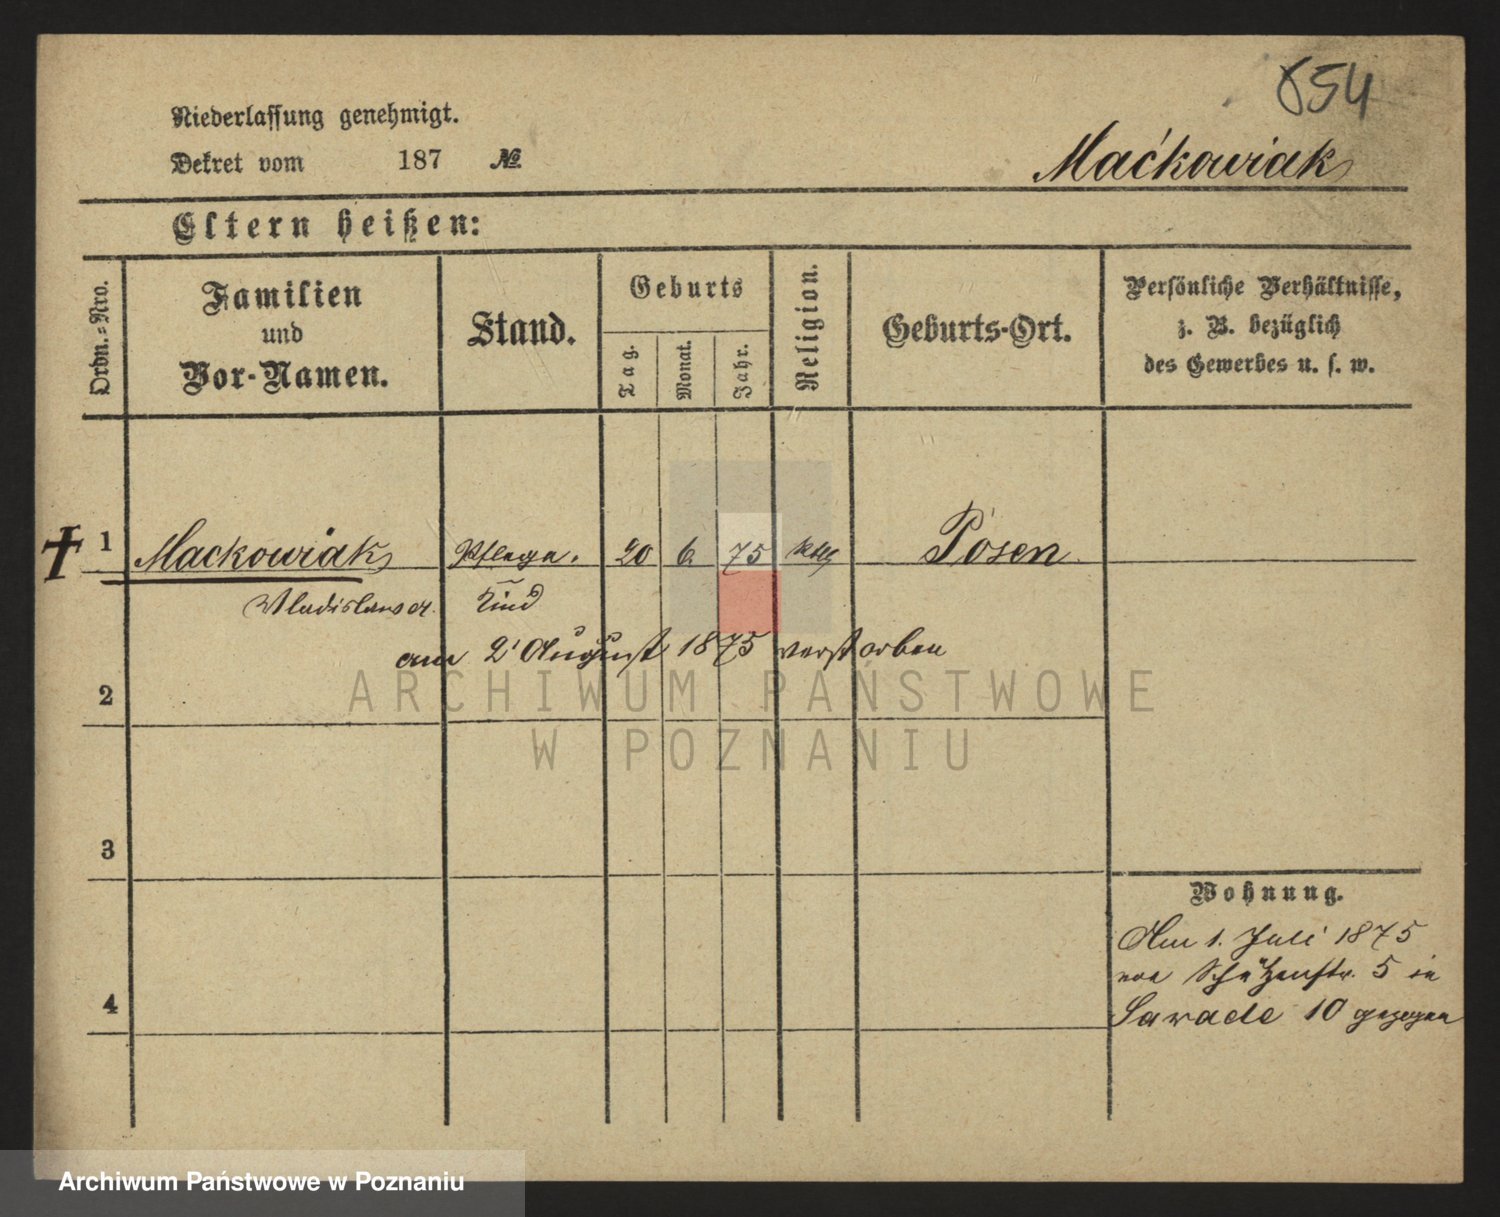 854
Niederlassung genehmigt.
Dekret vom 187 №
Maćkowiak
Eltern heißen:
Ordn.=Nro.
Familien
und
Vor-Namen.
Stand.
Geburts
Tag.
Monat.
Jahr.
Religion.
Geburts-Ort.
Persönliche Verhältnisse,
z. B. bezüglich
des Gewerbes u. s. w.
1 Mackowiak Pflege. 20 6. 75 kth Posen
Wladislawa Kind
am 2' August 1875 verstorben
2
3
4
Wohnung.
Am 1. Juli 1875
von Schützenstr. 5 in
Sawade 10 gezogen
ARCHIWUM PAŃSTWOWE
W POZNANIU
Archiwum Państwowe w Poznaniu